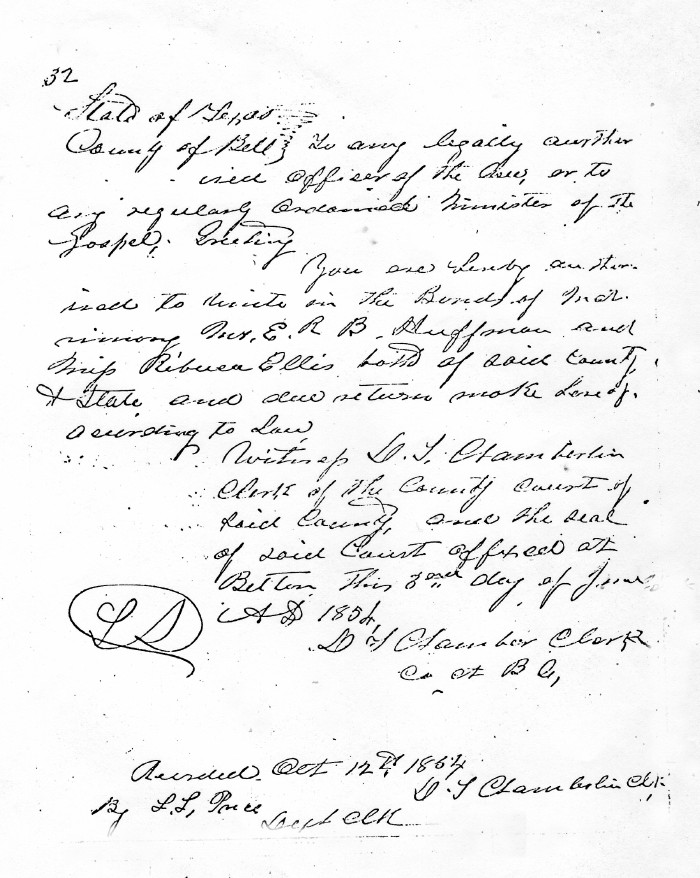 32
State of Texas
County of Bell } To any legally author
ised Officer of the Law, or to
any regularly Ordained Minister of the
Gospel, Greeting
You are hereby author-
ised to Unite in the Bonds of Mat-
rimony Mr. E. R. B. Huffman and
Miss Ribeca Ellis both of said County,
& State and due return make hereof.
according to Law
Witness D. T. Chamberlin
Clerk of the County Court of
said County, and the seal
of said Court affixed at
Belton this day of June
L S
A D 1854
D T Chamber Clerk
Co Ct B C,
Recorded Oct 12th 1854
D. T Chamberlin Clk
By L. L. Price
Dept Clk